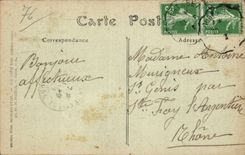 76
Carte Postale
Correspondance
Adresse
Bonjour
affectueux
Madame Antoine
Murigneux
St Genis par
Ste Foy l'Argentière
Rhône